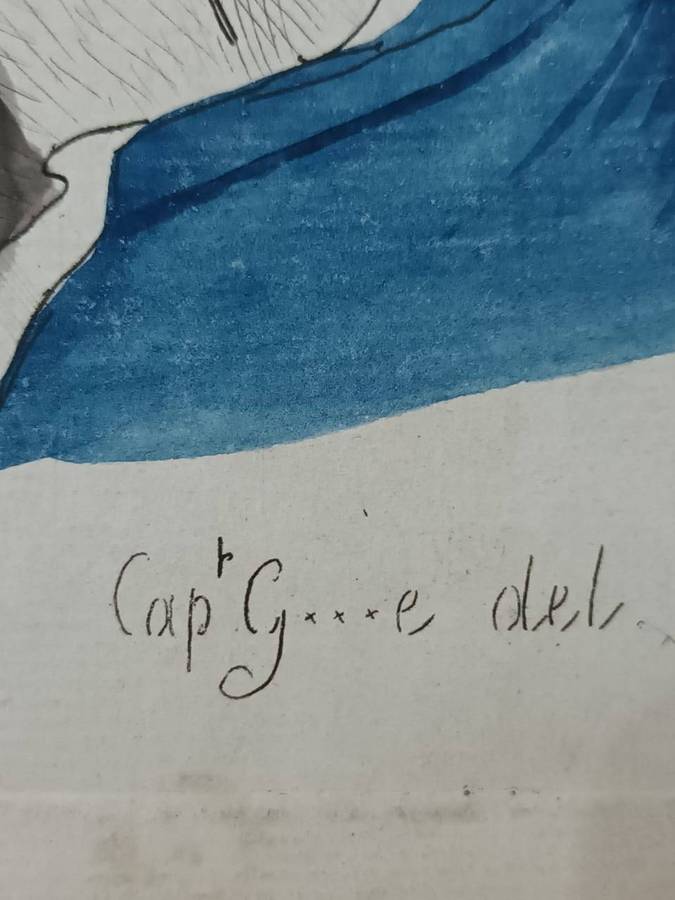 Capt G...e del.